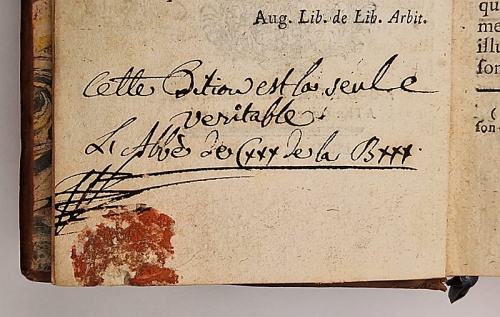 Aug. Lib. de Lib. Arbit.
Cette Edition est la seule
veritable
L'Abbè De Cxxx de la Bxxx.
qu
me
illu
son
(
son